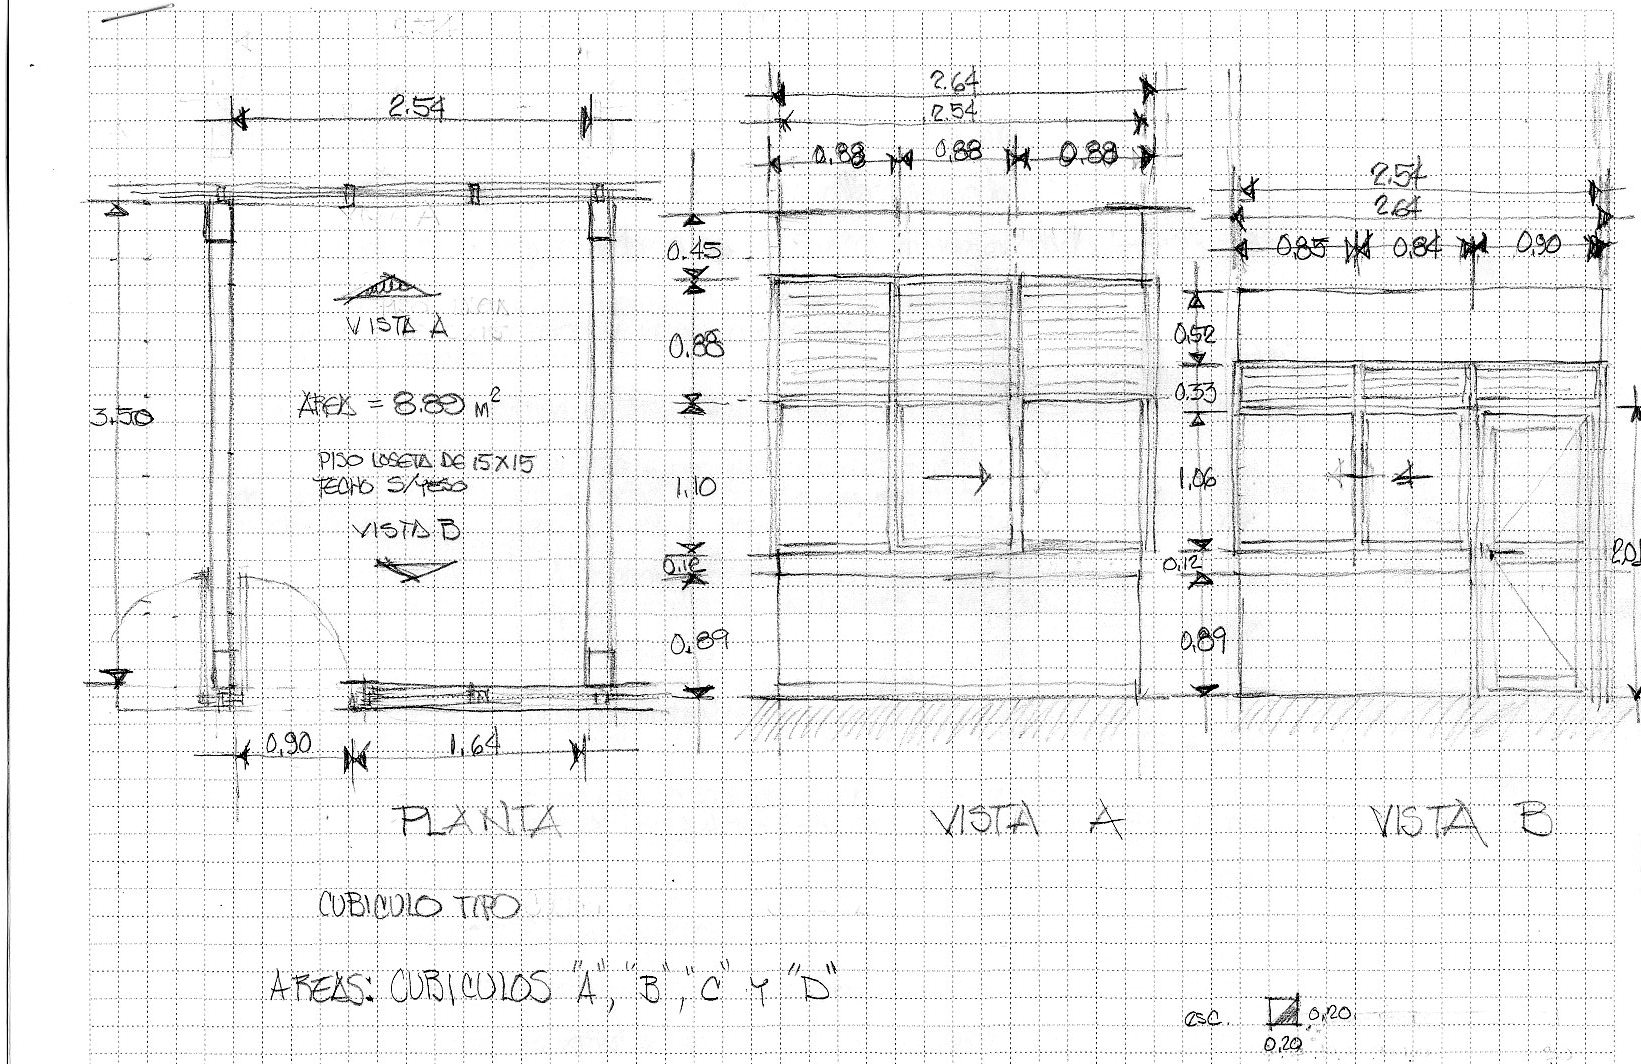 2.54
3.50
VISTA A
AREA = 8.89 M²
PISO LOSETA DE 15X15
TECHO S/YESO
VISTA B
0.90 1.64
PLANTA
2.64
2.54
0.88 0.88 0.88
0.45
0.88
1.10
0.12
0.89
VISTA A
2.54
2.64
0.85 0.84 0.90
0.52
0.33
1.06
0.12
0.89
VISTA B
CUBICULO TIPO
AREAS: CUBICULOS "A", "B", "C" Y "D"
esc. 0.20
0.20